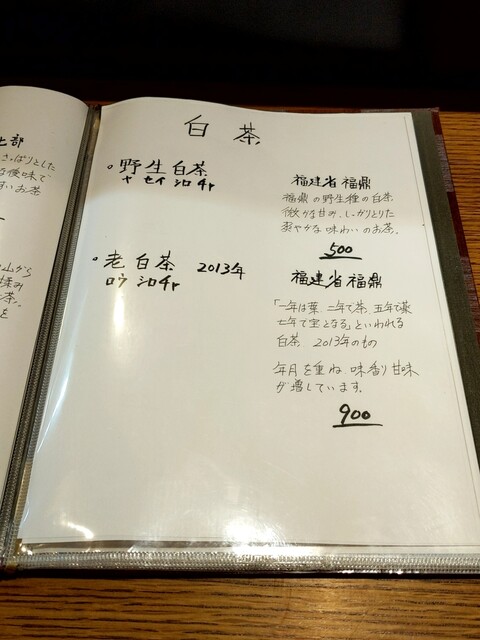 白茶
。野生白茶
ヤセイシロチャ
福建省福鼎
福鼎の野生種の白茶
微かな甘み、しっかりとした
爽やかな味わいのお茶。
500
。老白茶 2013年
ロウシロチャ
福建省福鼎
「一年は葉 二年で茶 五年で薬
七年で宝となる」といわれる
白茶 2013年のもの
年月を重ね 味香り甘味
が増しています。
900
さっぱりとした
な後味で
すいお茶
山から
揉み
茶。
を